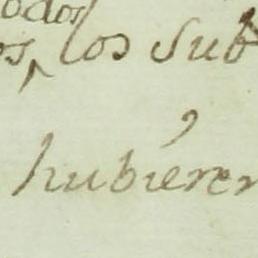 odos
os, los Sub
hubiéren